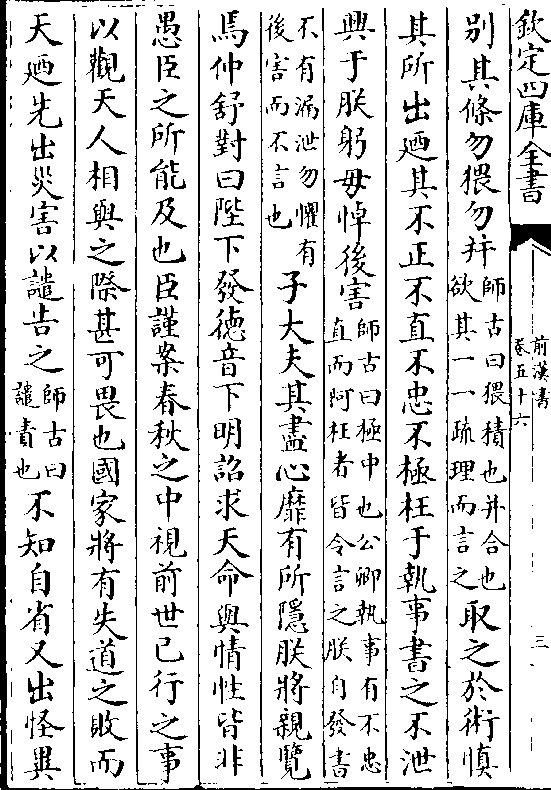 欽定四庫全書
前漢書
卷五十六
三
別其條勿猥勿并師古曰猥積也并合也
欲其一一疏理而言之取之於術慎
其所出廼其不正不直不忠不極枉于執事書之不泄
興于朕躬毋悼後害師古曰極中也公卿執事有不忠
直而阿枉者皆令言之朕自發書
不有漏泄勿懼有
後害而不言也子大夫其盡心靡有所隱朕將親覽
焉仲舒對曰陛下發德音下明詔求天命與情性皆非
愚臣之所能及也臣謹案春秋之中視前世已行之事
以觀天人相與之際甚可畏也國家將有失道之敗而
天廼先出災害以譴告之師古曰
譴責也不知自省又出怪異